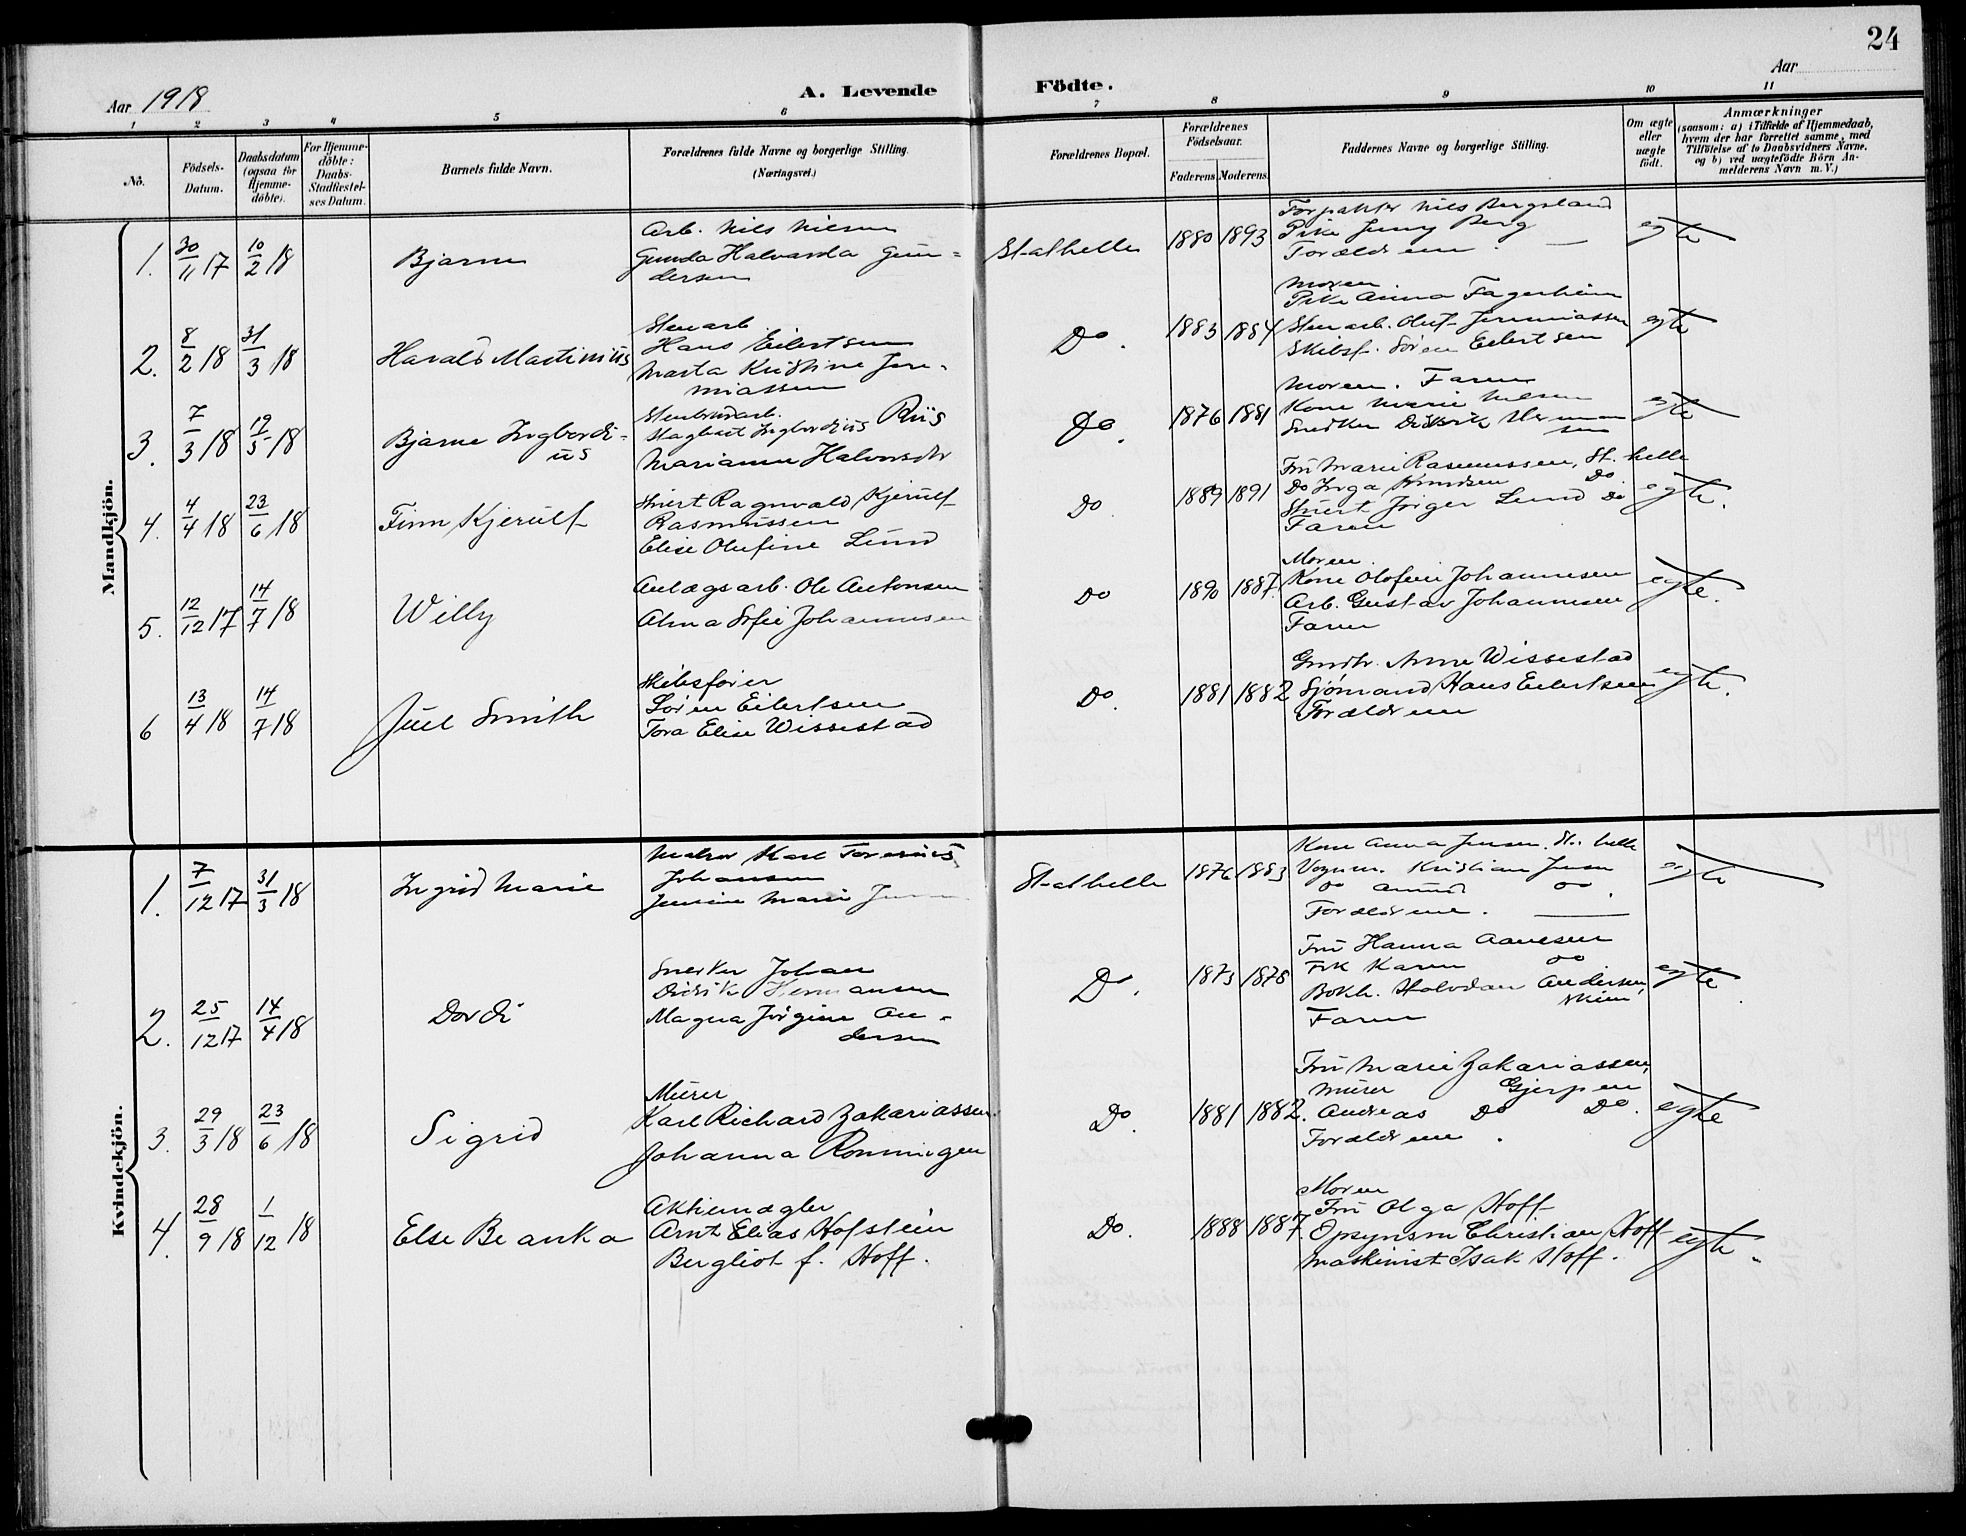 24
Aar 1918
A. Levende Födte.
Aar
1 2 3 4 5 6 7 8 9 10 11
No.
Födsels-Datum.
Daabsdatum (ogsaa för Hjemme-döbte).
For Hjemme-döbte: Daabs-Stadfæstel-ses Datum.
Barnets fulde Navn.
Forældrenes fulde Navne og borgerlige Stilling.
(Næringsvei.)
Forældrenes Bopæl.
Forældrenes Födselsaar.
Faderens. Moderens.
Faddernes Navne og borgerlige Stilling.
Om ægte eller uægte födt.
Anmærkninger
(saasom: a) i Tilfælde af Hjemmedaab, hvem der har forrettet samme, med Tilföielse af to Daabsvidners Navne, og b) ved uægtefödte Börn An-melderens Navn m. V.)
Mandkjön.
1. 30/11 17 10/2 18 Bjarne
Arb. Nils Nilsen
Gunda Halvarda Gun-
dersen
Stathelle 1880 1893
Forpakter Nils Bergsland
Pike Jenny Berg
Forældrene. —
egte
2. 8/2 18 31/3 18 Harald Martinius
Stenarb.
Hans Eilertsen
Marta Kristine Jere-
miassen
Do. 1883 1884
Moren
Pike Anna Fagerheim
Stenarb. Oluf Jeremiassen
Skibsf. Søren Eilertsen
egte
3. 7/3 18 19/5 18 Bjarne Ingbordi-
us
Stenbrudarb.
Ingbordius Riis
Marianne Halvorsdr
Do. 1876 1881
Moren. Faren
Kone Marie Nilsen
Snedker Didrik Herman
sen
egte
4. 4/4 18 23/6 18 Finn Kjerulf
Stuert Ragnvald Kjerulf
Rasmussen
Elise Olufine Lund
Do. 1889 1891
Fru Marie Rasmussen, St. helle
Do Inga Do.
Stuert Jørger Lund Do
Faren
egte.
5. 12/12 17 14/7 18 Willy
Anlægsarb. Ole Antonsen
Alma Sofie Johannesen
Do 1890 1887.
Moren.
Kone Olofine Johannesen
Arb. Gustav Johannesen
Faren
egte.
6 13/4 18 14/7 18 Juel Smith
Skibsfører
Søren Eilertsen
Tora Elise Wissestad
Do. 1881 1882
Gmdbr. Anne Wissestad
Sjømand Hans Eilertsen
Forældrene
egte.
Kvindekjön.
1. 7/12 17 31/3 18 Ingrid Marie
Matros Karl
Johansen
Marie
Stathelle 1876 1883
Kone Anna Jensen, St. helle
Vognm. Kristian Jensen
Do Do.
Forældrene. —
egte
2. 25/12 17 14/4 18 Dordi
Snedker Johan
Didrik Hermansen
Magna Jørgine An-
dersen
Do. 1873 1878
Fru Hanna Aanesen
Frk Karen Do
Bokh. Halvdan Andersen,
Skien
Faren
egte.
3. 29/3 18 23/6 18 Sigrid
Murer
Karl Richard Zakariassen.
Johanna Ronningen
Do. 1881 1882.
Fru Marie Zakariassen,
Murer Gjerpen
Andreas Do Do.
Forældrene.
egte
4. 28/9 18 1/12 18 Else Beanka
Aktiemægler
Arnt Elias Hofstein
Bergliot f. Hoff.
Do. 1888 1887.
Moren
Fru Olga Hoff
Opsynsm Christian Hoff
Maskinist Isak Hoff.
egte.